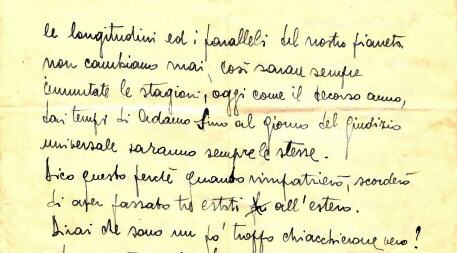 le longitudini ed i paralleli del nostro pianeta
non cambiano mai, così saran sempre
immutate le stagioni, oggi come il decorso anno,
dai tempi di Adamo fino al giorno del giudizio
universale saranno sempre le stesse.
Dico questo perchè quando rimpatrierò, scorderò
di aver passato tre estati all'estero.
Dirai che sono un pò troppo chiacchierone vero?